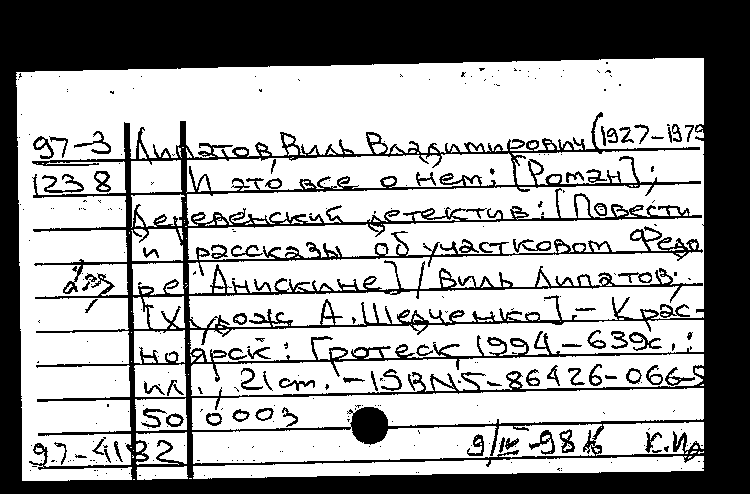 97-3 Липатов, Виль Владимирович (1927-1979
1238 И это все о нем: [Роман];
Деревенский детектив: [Повести
и рассказы об участковом Федо
ре Анискине] / Виль Липатов;
[Худож. А. Шевченко]. - Крас-
ноярск: Гротеск, 1994. - 639с.:
ил.; 21 cm. - ISBN 5-86426-066-5
50 000з
97-4132 9/III-98 К.Ир